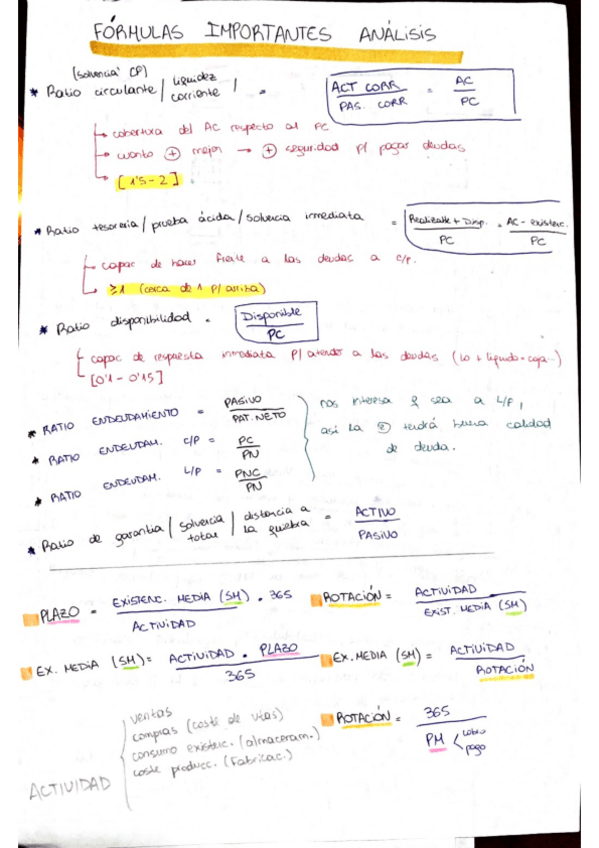 FÓRMULAS IMPORTANTES ANÁLISIS
(solvencia CP)
* Ratio circulante / liquidez corriente / = ACT CORR / PAS. CORR = AC / PC
→ cobertura del AC respecto al PC
→ cuanto ⊕ mejor → ⊕ seguridad p/ pagar deudas
→ [1'5-2]
* Ratio tesoreria / prueba ácida / solvencia inmediata = Realizable + Disp. / PC = AC - existenc. / PC
capac de hacer frente a las deudas a c/p.
→ ≥1 (cerca de 1 p/ arriba)
* Ratio disponibilidad = Disponible / PC
capac de respuesta inmediata p/ atender a las deudas (lo + líquido - caja...)
[0'1 - 0'15]
* RATIO ENDEUDAMIENTO = PASIVO / PAT. NETO
* RATIO ENDEUDAM. C/P = PC / PN
* RATIO ENDEUDAM. L/P = PNC / PN
nos interesa q sea a L/P,
así la tendrá buena calidad
de deuda.
* Ratio de garantia / solvencia total / distancia a la quiebra = ACTIVO / PASIVO
PLAZO = EXISTENC. MEDIA (SM) . 365 / ACTIVIDAD
ROTACIÓN = ACTIVIDAD / EXIST. MEDIA (SM)
EX. MEDIA (SM) = ACTIVIDAD . PLAZO / 365
EX. MEDIA (SM) = ACTIVIDAD / ROTACIÓN
ROTACIÓN = 365 / PM < cobro pago
ACTIVIDAD
ventas
compras (coste de vtas)
consumo existenc. (almaceram.)
coste producc. (fabricac.)